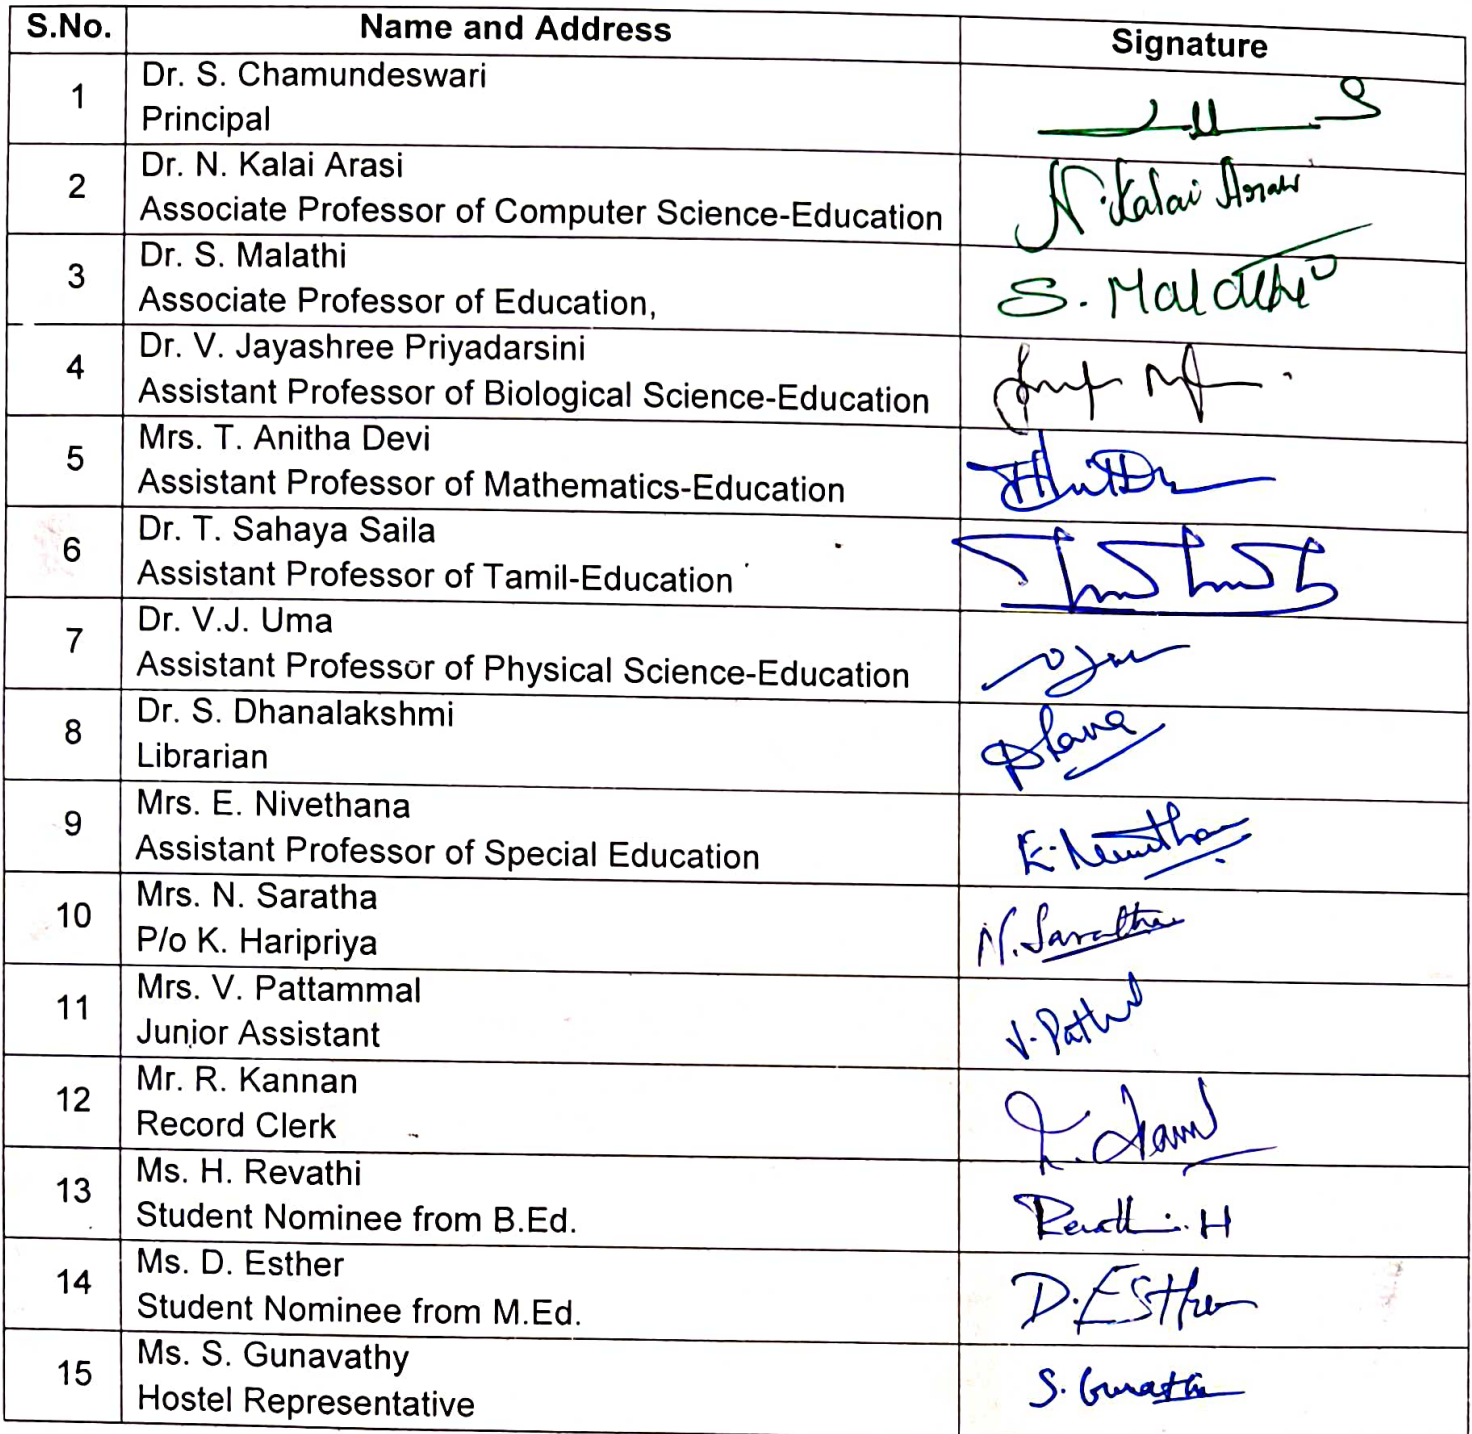 S.No. Name and Address Signature
1 Dr. S. Chamundeswari
Principal
2 Dr. N. Kalai Arasi N. Kalai Arasi
Associate Professor of Computer Science-Education
3 Dr. S. Malathi S. Malathi
Associate Professor of Education,
4 Dr. V. Jayashree Priyadarsini
Assistant Professor of Biological Science-Education
5 Mrs. T. Anitha Devi
Assistant Professor of Mathematics-Education
6 Dr. T. Sahaya Saila
Assistant Professor of Tamil-Education
7 Dr. V.J. Uma
Assistant Professor of Physical Science-Education
8 Dr. S. Dhanalakshmi
Librarian
9 Mrs. E. Nivethana
Assistant Professor of Special Education
10 Mrs. N. Saratha N. Saratha
P/o K. Haripriya
11 Mrs. V. Pattammal
Junior Assistant
12 Mr. R. Kannan
Record Clerk
13 Ms. H. Revathi Revathi. H
Student Nominee from B.Ed.
14 Ms. D. Esther D. Esther
Student Nominee from M.Ed.
15 Ms. S. Gunavathy
Hostel Representative